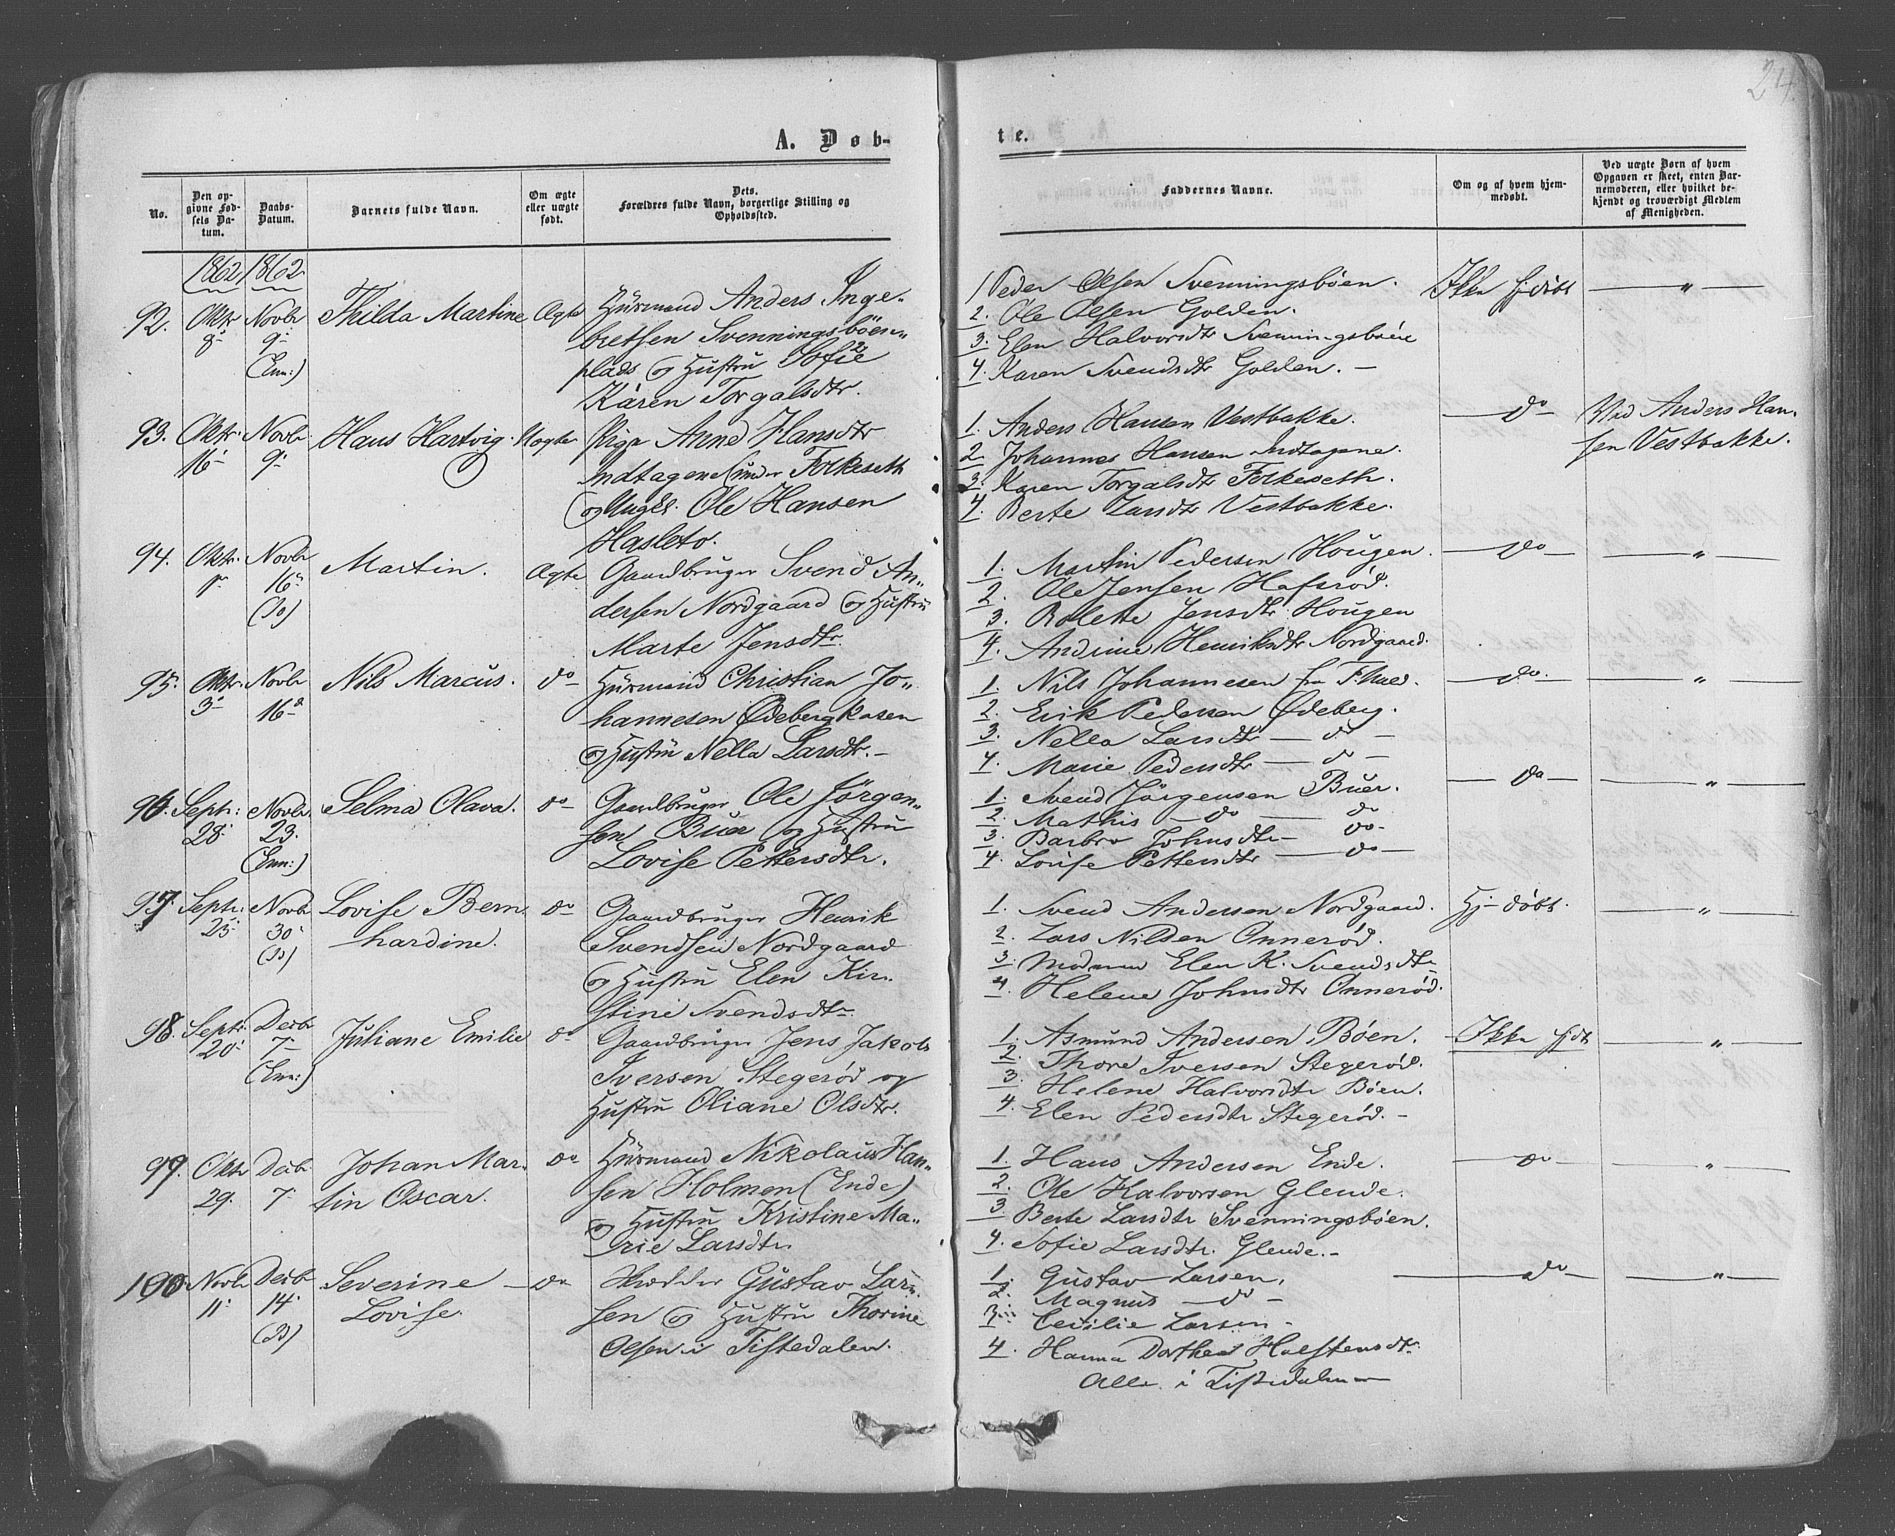 24.
A. Døb-
te.
No.
Den op-
givne Fød-
sels Da-
tum.
Daabs-
Datum.
Barnets fulde Navn.
Om ægte
eller uægte
født.
Dets.
Forældres fulde Navn, borgerlige Stilling og
Opholdssted.
Faddernes Navne.
Om og af hvem hjem-
medøbt.
Ved uægte Børn af hvem
Opgaven er skeet, enten Bar-
nemoderen, eller hvilket be-
kjendt og troværdigt Medlem
af Menigheden.
1862 1862
92. Oktr 8 Novbr 9 (Enn:)
Thilda Martine
Ægte
Huusmand Anders Inge-
bretsen Svenningsböen-
plads og Hustru Sofie
Karen Torgalsdtr.
1 Peder Olsen Svenningsböen.
2. Ole Olsen Golden.
3. Elen Halvorsdtr Svenningsböen
4. Karen Svendsdtr Golden. —
Ikke hjdöbt
— " —
93. Oktr. 16 Novbr 9
Hans Hartvig.
Uægte
Pige Anne Hansdtr
Indtagene under Folkeseth
og Ungk. Ole Hansen
Hasleto.
1. Anders Hansen Vestbakke.
2. Johannes Hansen Indtagene.
3. Karen Torgalsdtr Folkeseth.
4. Berte Larsdtr Vestbakke.
— do —
Ved Anders Han-
sen Vestbakke.
94. Oktr. Novbr 16
Martin.
Ægte
Gaardbruger Svend An-
dersen Nordgaard og Hustru
Marte Jensdtr.
1. Martin Pedersen Hougen.
2. Ole Jensen Hafsröd.
3. Bolette Jensdtr Hougen
4. Andrine Henriksdtr Nordgaard.
— do —
— " —
95. Oktr 3 Novbr 16
Nils Marcus.
do
Huusmand Christian Jo-
hannesen Ødebergkasen
og Hustru Nella Larsdtr. —
1. Nils Johannesen fra
2. Erik Pedersen Ødeberg.
3. Nella Larsdtr — do —
4. Marie Pedersdtr — do —
— do. —
— " —
96. Septr: 28 Novbr. 23. (Enn:)
Selma Olava.
do
Gaardbruger Ole Jörgen-
sen Buer og Hustru
Lovise Pettersdtr.
1. Svend Jörgensen Buer.
2. Mathis — do — do
3. Barbro Johnsdtr — do —
4. Louise Pettersdtr — do —
— do —
— " —
97. Septr: 25 Novbr 30 (B)
Lovise Bern-
hardine.
do
Gaardbruger Henrik
Svendsen Nordgaard
og Hustru Elen Kir-
stine Svendsdtr.
1. Svend Andersen Nordgaard.
2. Lars Nilsen Onneröd.
3. Moderen Elen K. Svendsdtr
4. Helene Johnsdtr Onneröd.
Hj-döbt.
— " —
98. Septr: 20 Decbr 7 (Enn:)
Juliane Emilie
do
Gaardbruger Jens Jakob
Iversen Stegeröd og
Hustru Oliane Olsdtr.
1. Asmund Andersen Böen.
2. Thore Iversen Stegeröd.
3. Helene Halvorsdtr Böen.
4. Elen Pedersdtr Stegeröd. —
Ikke hjdt
— " —
99. Oktr 29. Decbr. 7.
Johan Mar-
tin Oscar.
do
Huusmand Nikolaus Han-
sen Holmen (Ende)
og Hustru Kristine Ma-
rie Larsdtr.
1. Hans Andersen Ende.
2. Ole Halvorsen Glende.
3 Berte Larsdtr Svenningsböen.
4. Sofie Larsdtr. Glende. —
— do —
— " —
100. Novbr 11. Decbr 14. (B)
Severine
Lovise.
— do
Skrædder Gustav Lar-
sen og Hustru Thorine
Olsen i Tistedalen.
1. Gustav Larsen.
2. Magnus — do —
3. Cecilie Larsen —
4. Hanna Dorthea Holstensdtr.
Alle i Tistedalen —
— do —
— " —